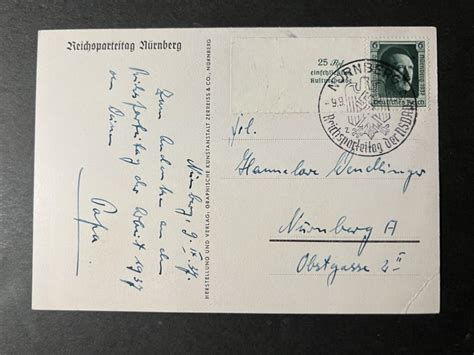 Reichsparteitag Nürnberg
Nürnberg, 9. IX. 37.
Zum Andenken an den
Reichsparteitag der Arbeit 1937
von Deinem
Papa.
HERSTELLUNG UND VERLAG: GRAPHISCHE KUNSTANSTALT ZERREISS & CO., NÜRNBERG
25 Rpf
einschließlich
Kulturspende
6
6
Deutsches Reich
NÜRNBERG
9.9
Reichsparteitag der NSDAP
Frl.
Hannelore
Nürnberg A
Obstgasse 2